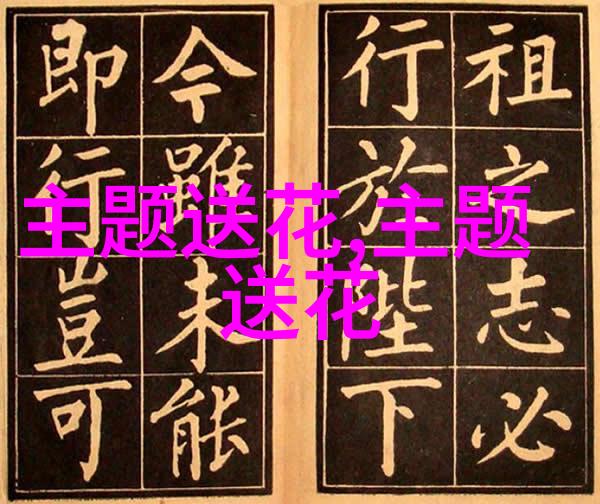 祖之志必
行於陛下
今雖未能
即行豈可
主题送花,主题
送花